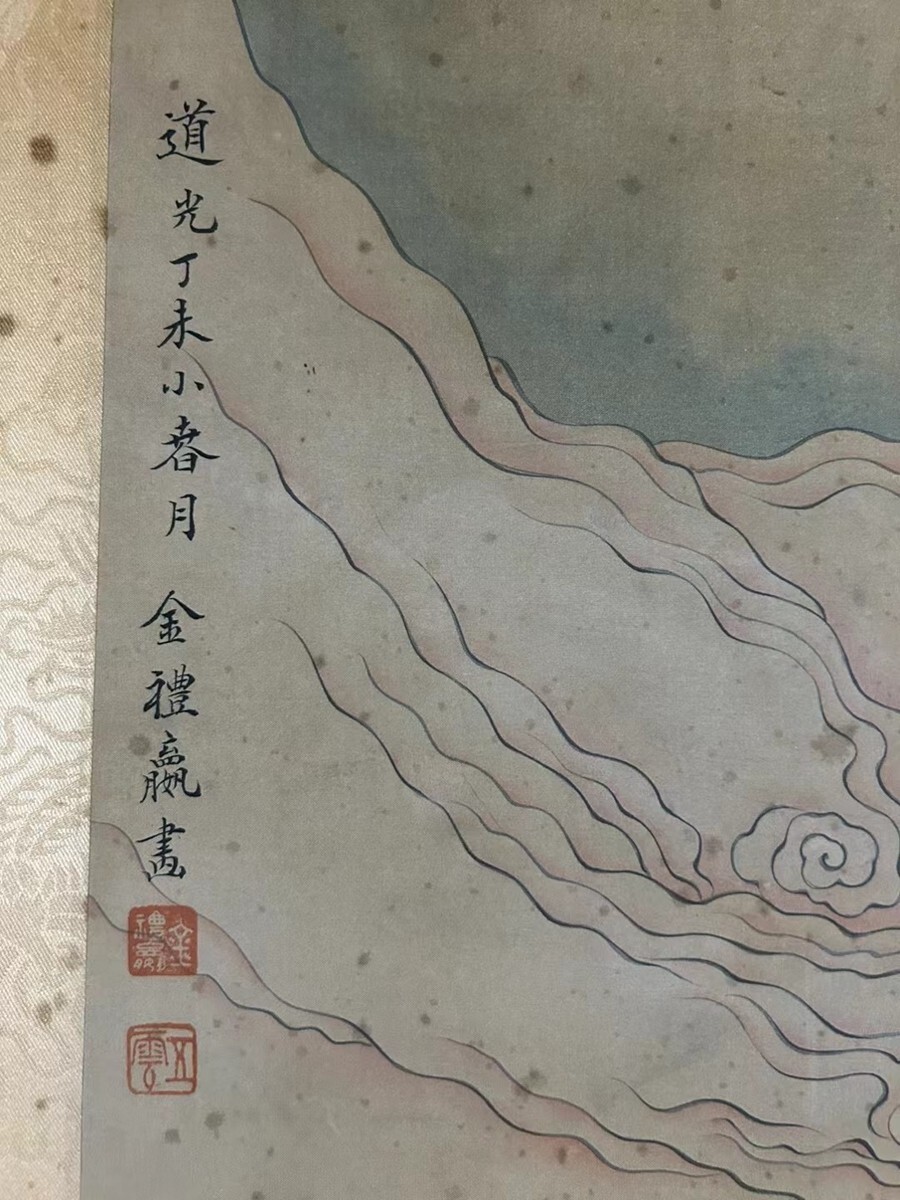 道光丁未小春月 金禮嬴畫
金禮嬴
五雲